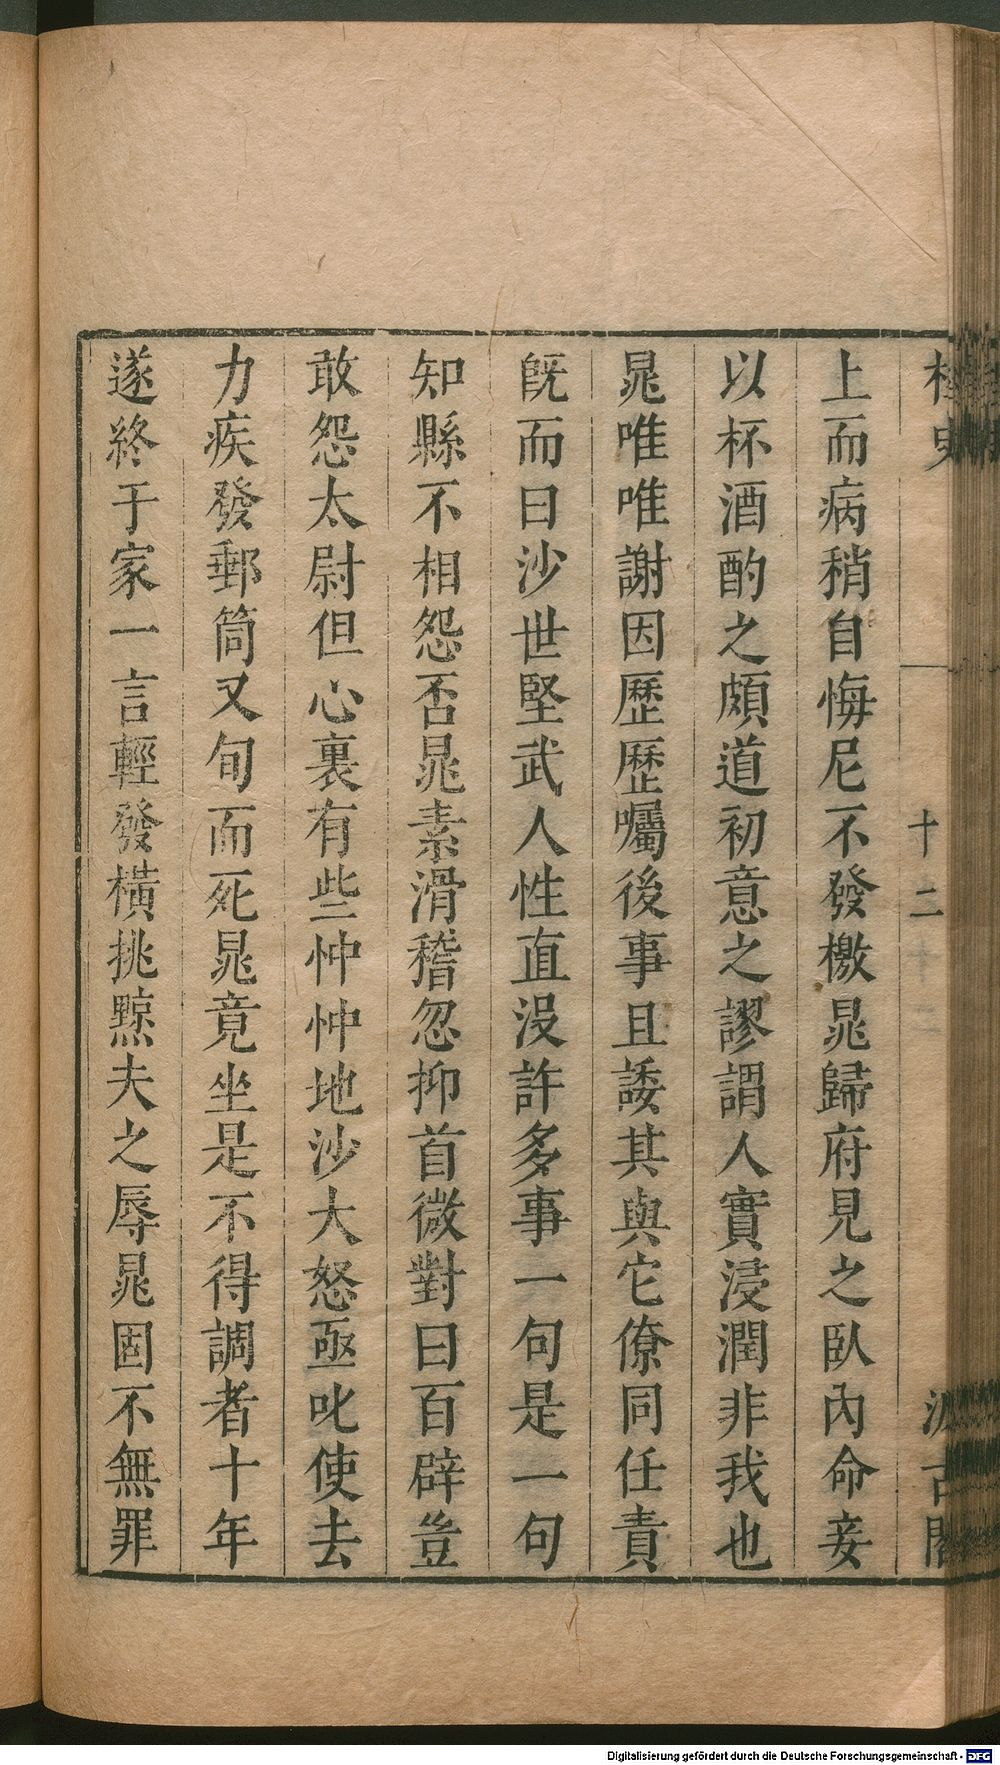 史
十二
古
上而病稍自悔尼不發檄晁歸府見之臥內命妾
以杯酒酌之頗道初意之謬謂人實浸潤非我也
晁唯唯謝因歷歷囑後事且諉其與它僚同任責
旣而曰沙世堅武人性直沒許多事一句是一句
知縣不相怨否晁素滑稽忽抑首微對曰百辟豈
敢怨太尉但心裏有些忡忡地沙大怒亟叱使去
力疾發郵筒又旬而死晁竟坐是不得調者十年
遂終于家一言輕發橫挑黥夫之辱晁固不無罪
Digitalisierung gefördert durch die Deutsche Forschungsgemeinschaft - DFG